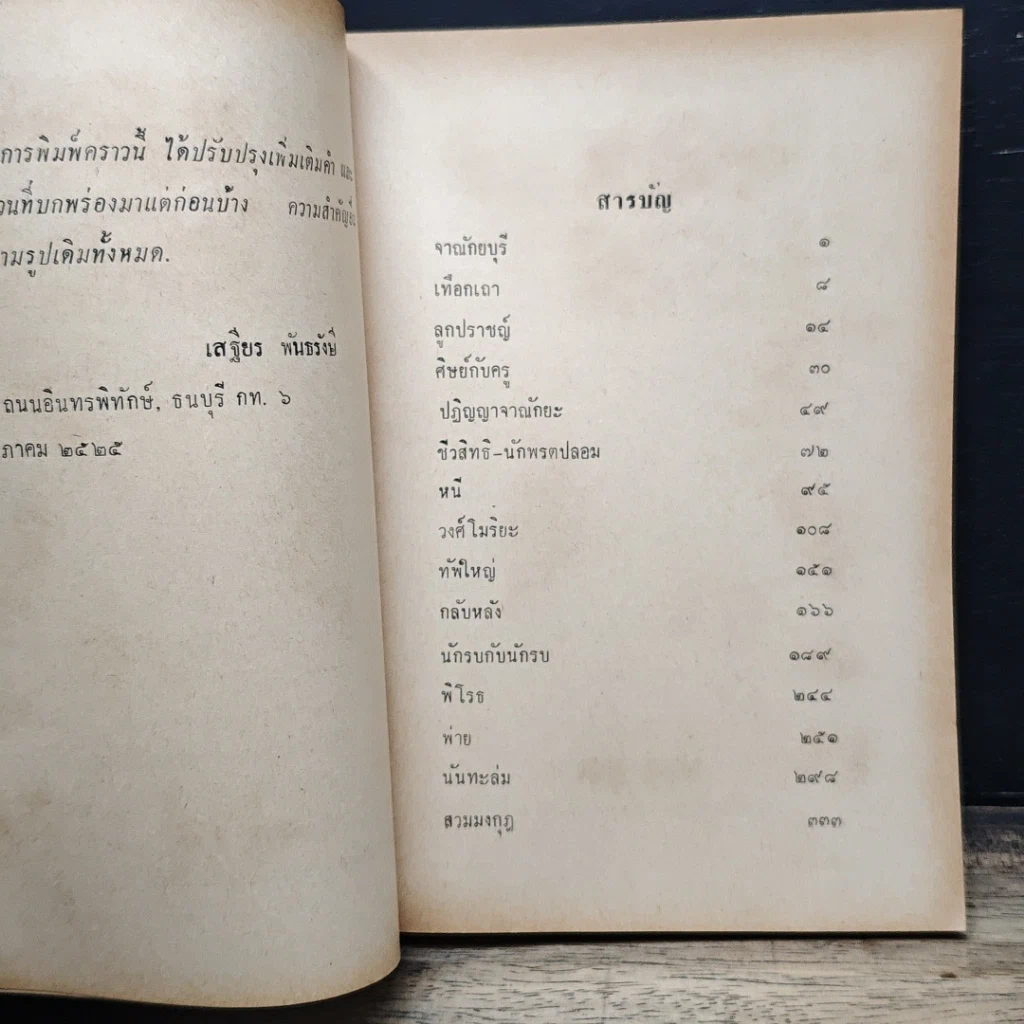 การพิมพ์คราวนี้ ได้ปรับปรุงเพิ่มเติมคำ และ
ที่บกพร่องมาแต่ก่อนบ้าง ความสำคัญ
ตามรูปเดิมทั้งหมด.
เสฐียร พันธรังษี
ถนนอินทรพิทักษ์, ธนบุรี กท. ๖
๒๕๒๕
สารบัญ
จาณักยบุรี ๑
เทือกเถา ๘
ลูกปราชญ์ ๑๔
ศิษย์กับครู ๓๐
ปฏิญญาจาณักยะ ๔๙
ชีวสิทธิ-นักพรตปลอม ๗๒
หนี ๙๕
วงศ์โมริยะ ๑๐๘
ทัพใหญ่ ๑๕๑
กลับหลัง ๑๖๖
นักรบกับนักรบ ๑๘๙
พิโรธ ๒๔๔
พ่าย ๒๕๑
นันทะล่ม ๒๙๘
สวมมงกุฎ ๓๓๓